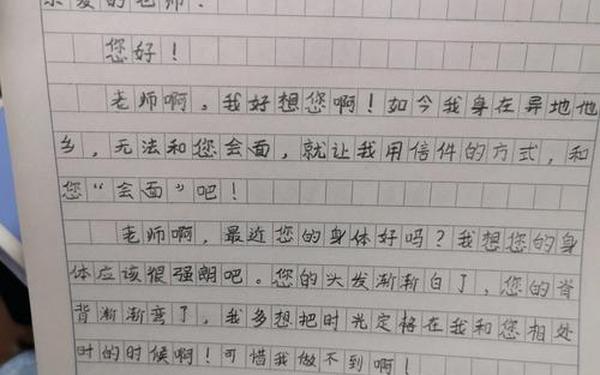 亲爱的老师：
您好！
老师啊，我好想您啊！如今我身在异地他
乡，无法和您会面，就让我用信件的方式，和
您“会面”吧！
老师啊，最近您的身体好吗？我想您的身
体应该很强朗吧。您的头发渐渐白了，您的脊
背渐渐弯了，我多想把时光定格在我和您相处
时的时候啊！可惜我做不到啊！